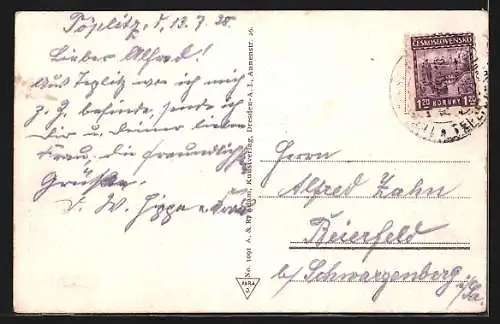 Töplitz, d, 13.7.38.
Lieber Alfred!
Aus Teplitz wo ich mich
z. Z. befinde, sende ich
Dir u. deiner lieben
Frau, die freundlich
Grüße.
W. Hippe u. Frau
No. 1091 A. & R. Adam, Kunstverlag, Dresden-A. I, Annenstr. 26.
PARA
ČESKOSLOVENSKO
1.20 KORUNY 1.20
Herrn
Alfred Zahn
Beierfeld
b/ Schwarzenberg
i/Sa.